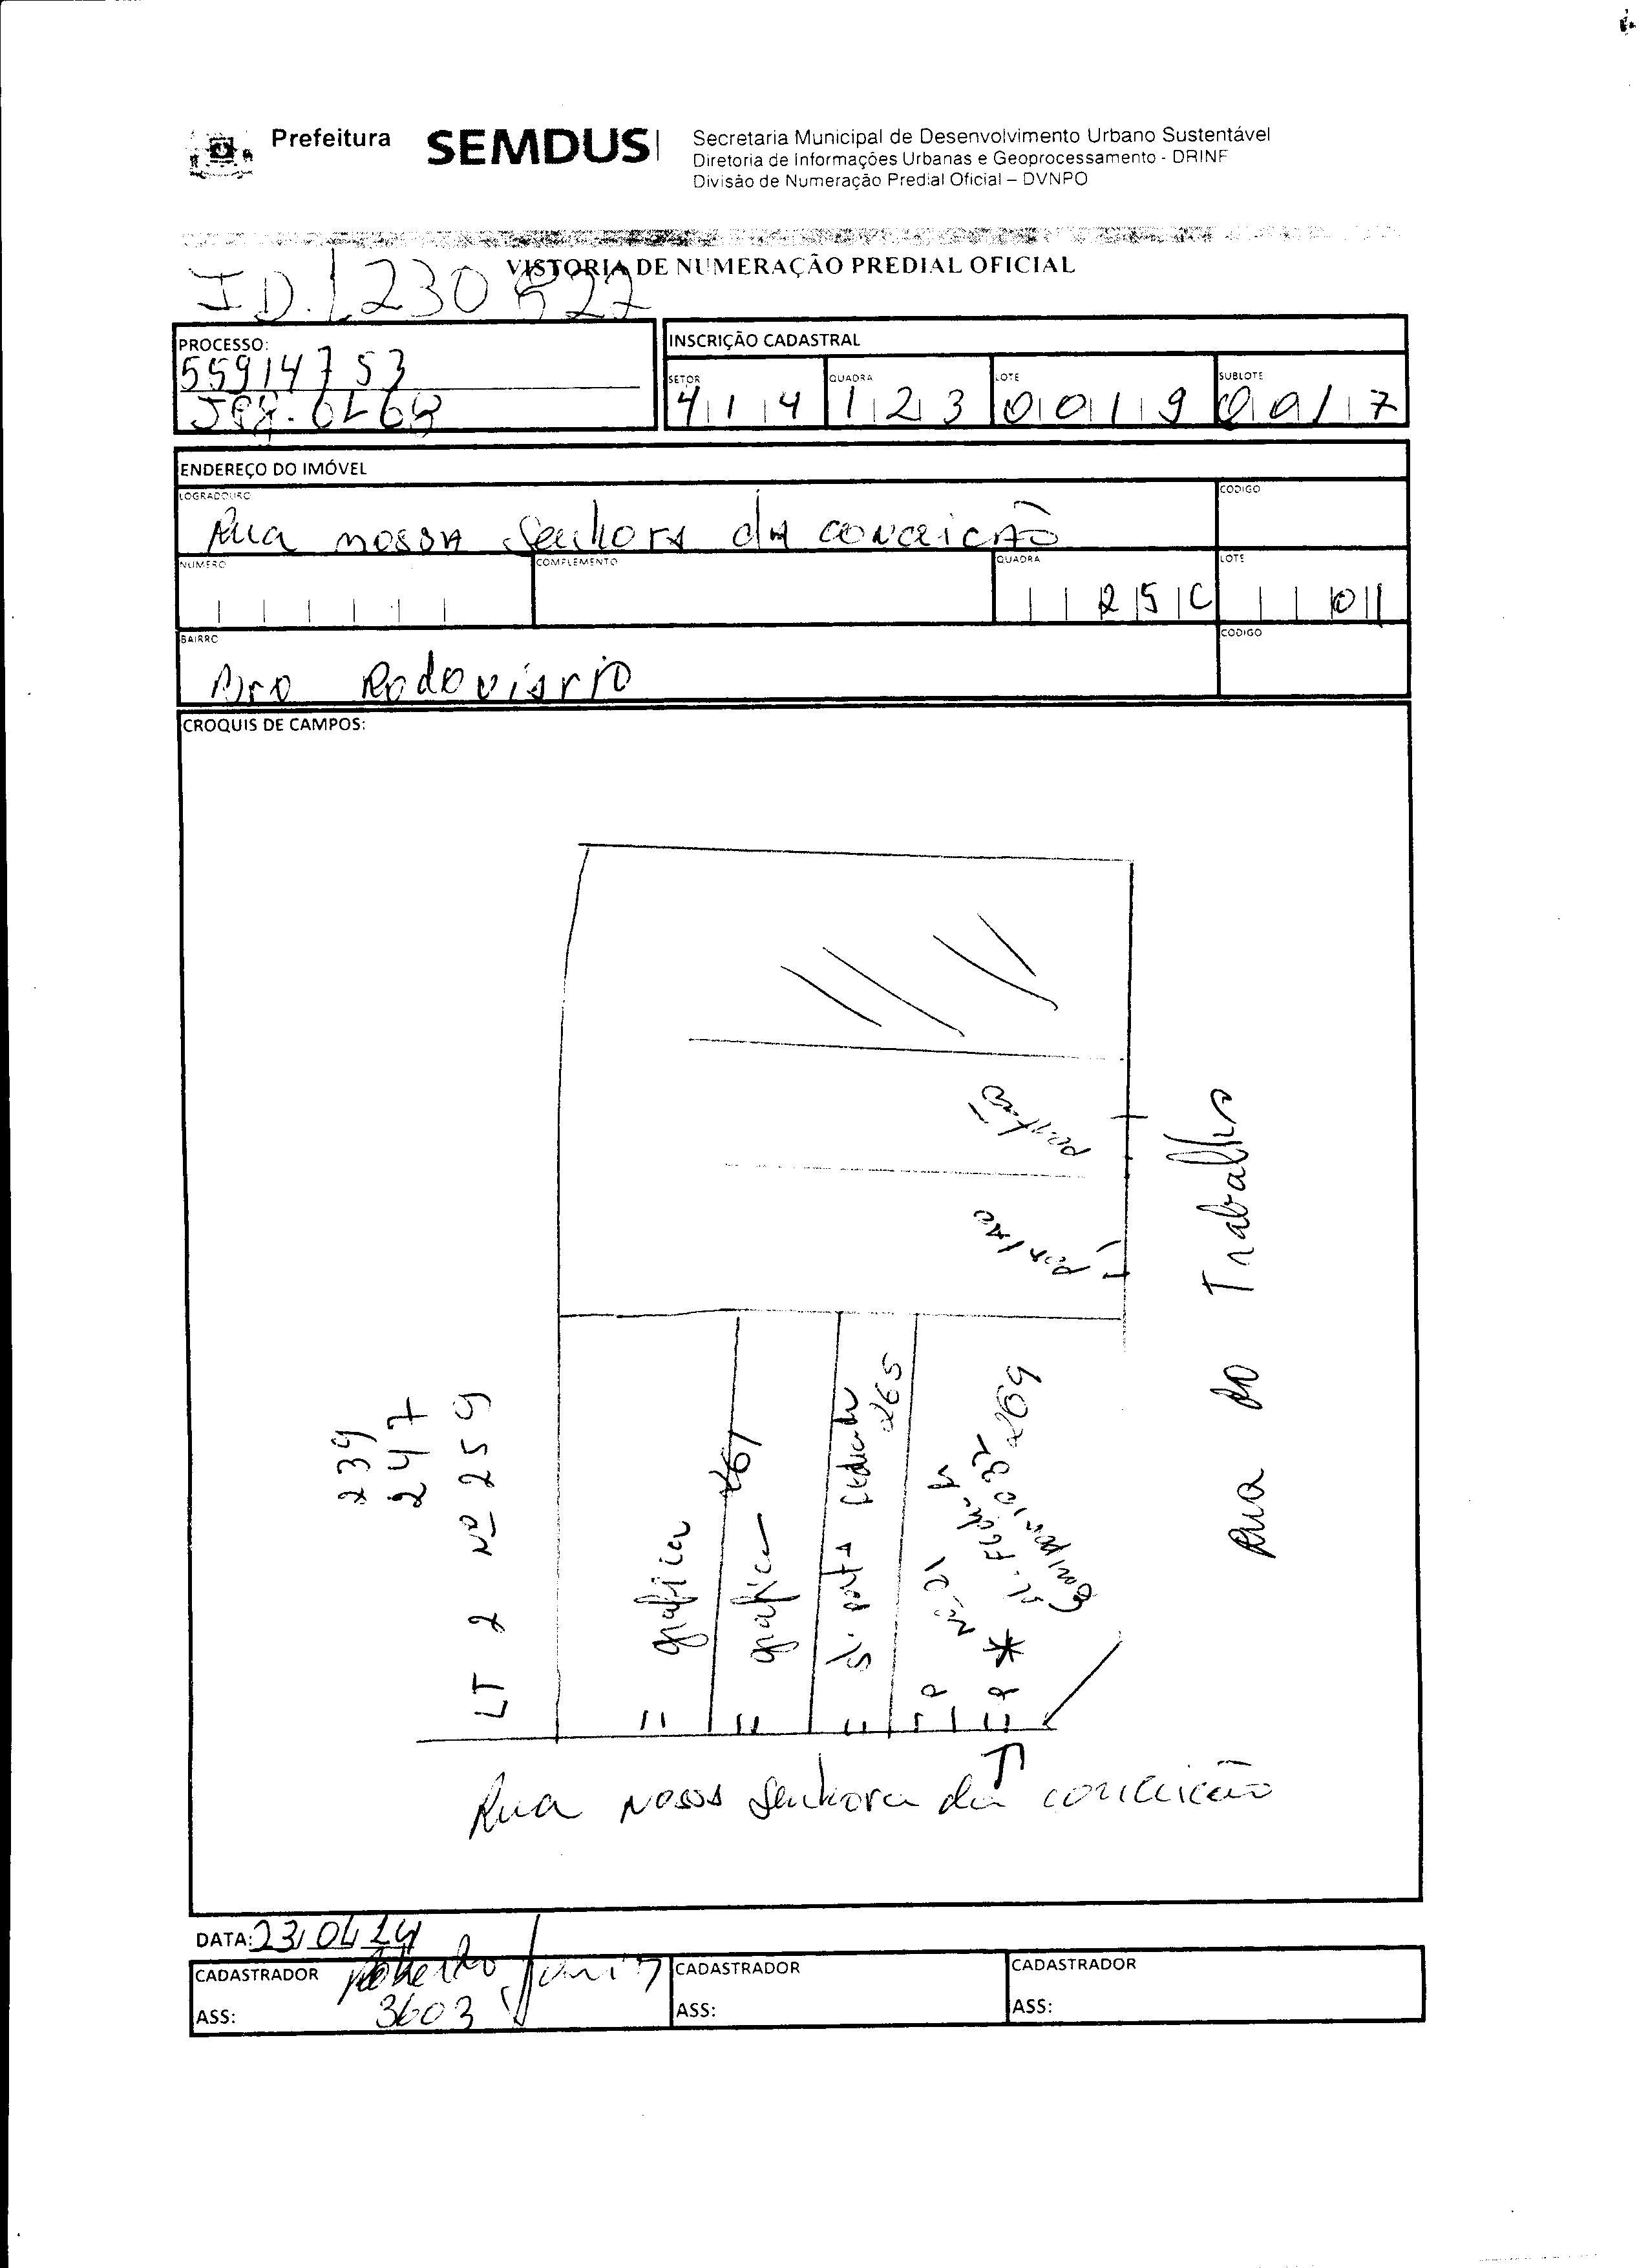 Prefeitura
SEMDUS
Secretaria Municipal de Desenvolvimento Urbano Sustentável
Diretoria de Informações Urbanas e Geoprocessamento - DRINF
Divisão de Numeração Predial Oficial – DVNPO
VISTORIA DE NUMERAÇÃO PREDIAL OFICIAL
ID.
PROCESSO:
55914753
INSCRIÇÃO CADASTRAL
SETOR
414
QUADRA
123
LOTE
0019
SUBLOTE
0017
ENDEREÇO DO IMÓVEL
LOGRADOURO
Rua nossa Senhora da conceicão
CODIGO
NUMERO
COMPLEMENTO
QUADRA
25C
LOTE
01
BAIRRO
Aro Rodoviario
CODIGO
CROQUIS DE CAMPOS:
portão
portão
Rua do Trabalho
239
247
LT 2 Nº 259
grafica
261
grafica
sl. porta fechada
265
P Nº 01
P * sl. Fechada
269
Rua Nossa Senhora da conceicão
DATA: 23/04/24
CADASTRADOR Roberto Junior
ASS: 3603
CADASTRADOR
ASS:
CADASTRADOR
ASS: